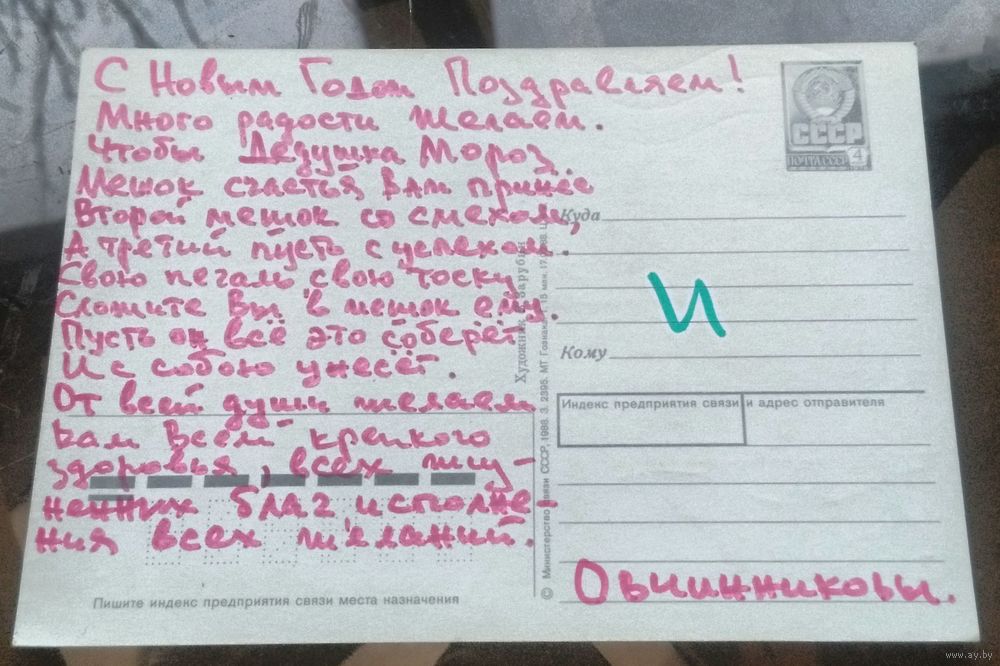 С Новым Годом Поздравляем!
Много радости желаем.
Чтобы Дедушка Мороз
Мешок счастья вам принёс
Второй мешок со смехом,
А третий пусть с успехом.
Свою печаль свою тоску
Сложите Вы в мешок ему.
Пусть он всё это соберёт
И с собою унесёт.
От всей души желаем
Вам всем крепкого
здоровья, всех жиз-
ненных благ исполне-
ния всех желаний.
Пишите индекс предприятия связи места назначения
Художник Зарубин
© Министерство связи СССР, 1988. З. 2395. МТ Гознака.
СССР
ПОЧТА СССР 4
Куда
И
Кому
Индекс предприятия связи и адрес отправителя
Овчинниковы.
www.ay.by